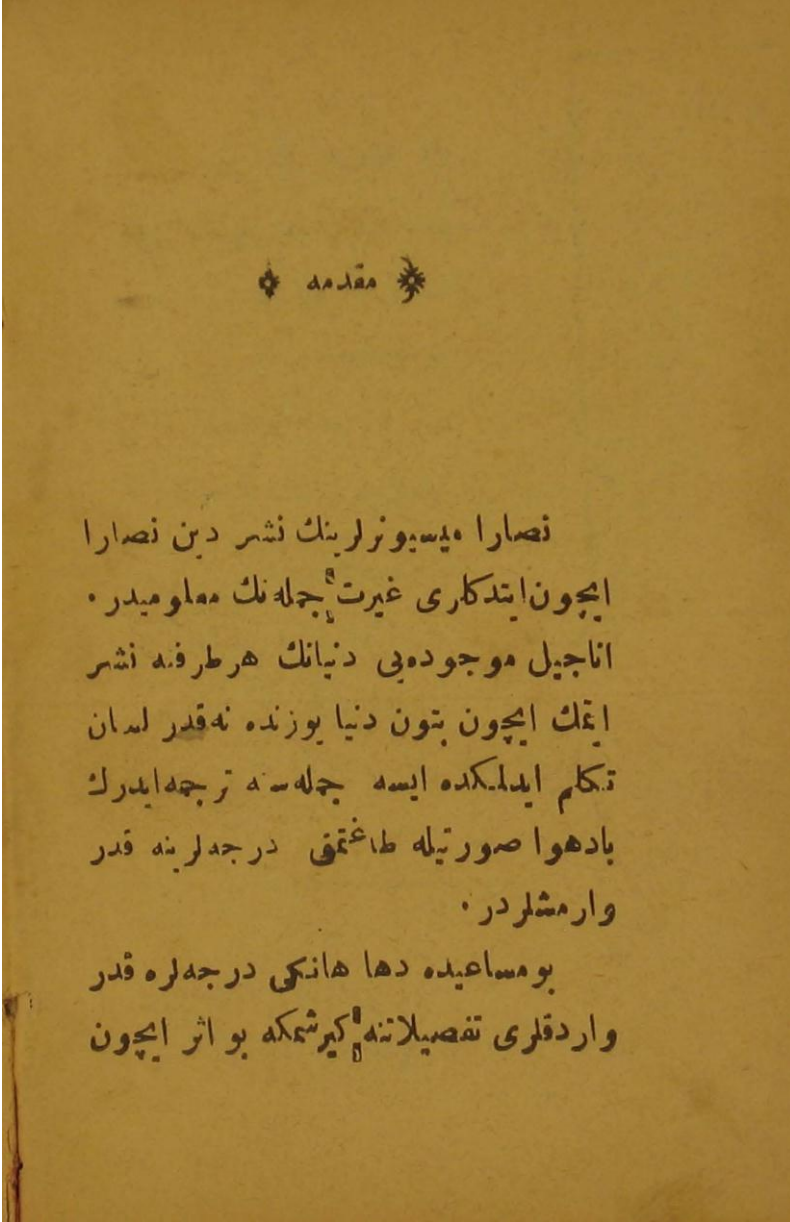 مقدمه
نصارا ميسيونرلرينك نشر دين نصارا
ايچون ايتدكلرى غيرت جمله‌نك معلوميدر .
اناجيل موجوده‌يى دنيانك هر طرفنه نشر
ايتمك ايچون بتون دنيا يوزنده نه‌قدر لسان
تكلم ايدلمكده ايسه جمله‌سنه ترجمه ايدرك
بادهوا صورتيله طاغتمق درجه‌لرينه قدر
وارمشلردر .
بو مساعيده دها هانكى درجه‌لره قدر
واردقلرى تفصيلاتنه كيرشمكه بو اثر ايچون